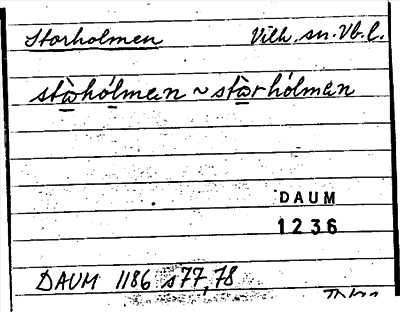 Storholmen Vilh. sn. Vb. l.
stàrhólmen ~ stàrhólmen
DAUM
1236
DAUM 1186 s 77, 78